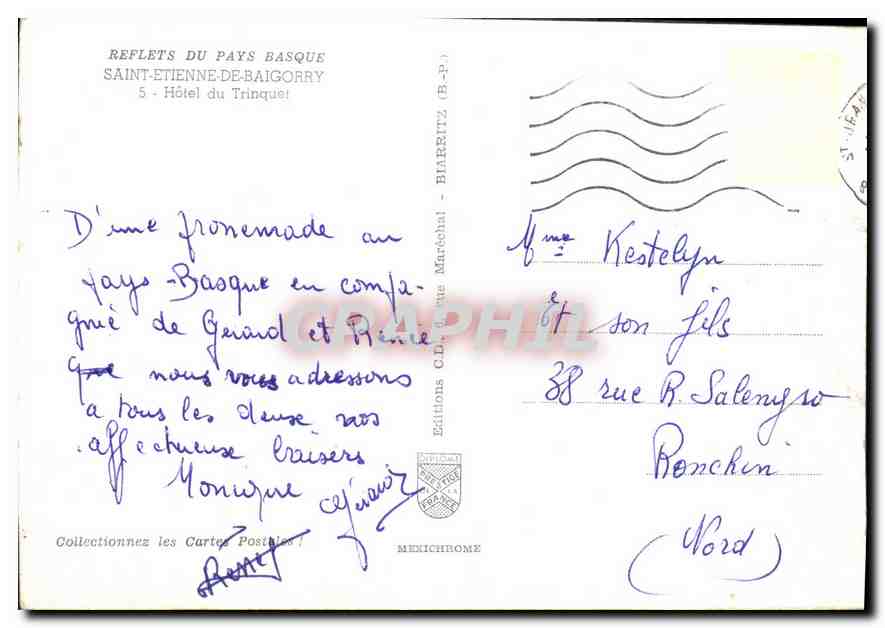 REFLETS DU PAYS BASQUE
SAINT-ETIENNE-DE-BAIGORRY
5 - Hôtel du Trinquet
D'une promenade au
pays-Basque en compa-
gnie de Gérard et Renée
que nous vous adressons
a tous les deux nos
affectueuse baisers
Monique
Gérard
Renée
Collectionnez les Cartes Postales !
MEXICHROME
Editions C.D., rue Maréchal - BIARRITZ (B.-P.)
DIPLOME
PRESTIGE
FRANCE
CRAPHIL
ST-JEAN
Mme Kestelyn
et son fils
38 rue R. Salengro
Ronchin
(Nord)